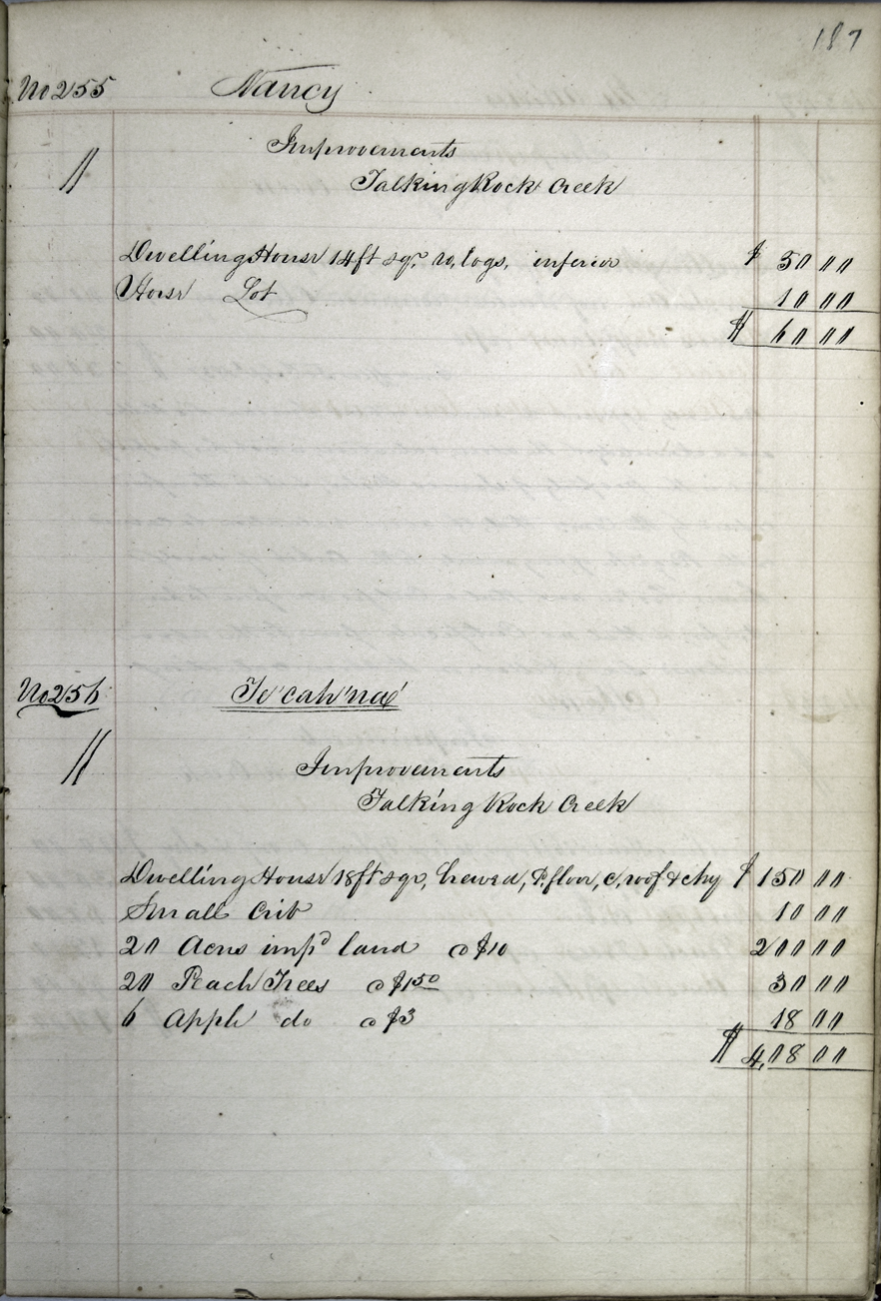 187
No 255 Nancy
Improvements
Talking Rock Creek
Dwelling House 14 ft sqr. r, logs, inferior $ 50 00
Horse Lot 10 00
$ 60 00
No 256 Te'cah'na'
Improvements
Talking Rock Creek
Dwelling House 18 ft sqr, hewed, P. floor, c, roof & chy $ 150 00
Small Crib 10 00
20 Acres impd land @ $10 200 00
20 Peach Trees @ $1 50 30 00
6 Apple do @ $3 18 00
$ 4,08 00